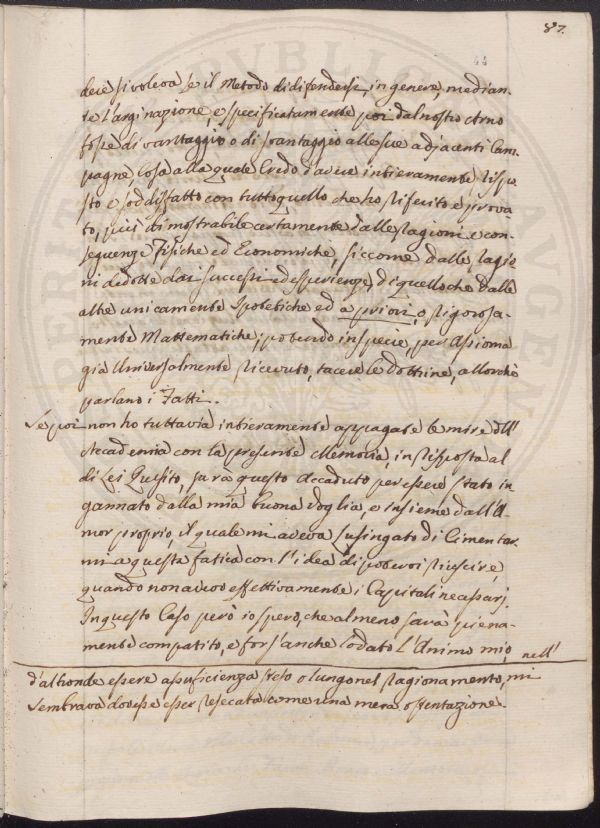 87.
44
dere si voleva se il Metodo di difendersi in genere, median-
te l'arginazione, e specificatamente poi dal nostro Arno
fosse di vantaggio o di svantaggio alle sue adjacenti Cam-
pagne, Cosa alla quale Credo d'avere intieramente rispo-
sto e soddisfatto con tutto quello che ho riferito e prova-
to, più dimostrabile certamente dalle ragioni e con-
seguenze Fisiche ed Economiche, siccome dalle ragio-
ni dedotte dai successi ed esperienze, di quello che dalle
altre unicamente Ipotetiche ed a priori, o rigorosa-
mente Mattematiche; potendo in specie per Assioma
già Universalmente ricevuto, tacere le dottrine, allorchè
parlano i Fatti.
Se poi non ho tuttavia intieramente appagate le mire dell'
Accademia con la presente Memoria, in risposta al
di Lei Quesito, sarà questo accaduto per essere stato in
gannato dalla mia buona voglia, e insieme dall'A-
mor proprio, il quale mi aveva lusingato di Cimentar-
mi a questa fatica con l'idea di potervi riuscire,
quando non avevo effettivamente i Capitali necessarj.
In questo Caso però io spero, che almeno sarà piena-
mente compatito, e fors'anche lodato l'Animo mio, nell'
d'altronde essere a sufficienza steso o lungo nel ragionamento, mi
sembrava dovesse esser resecata come una mera ostentazione.